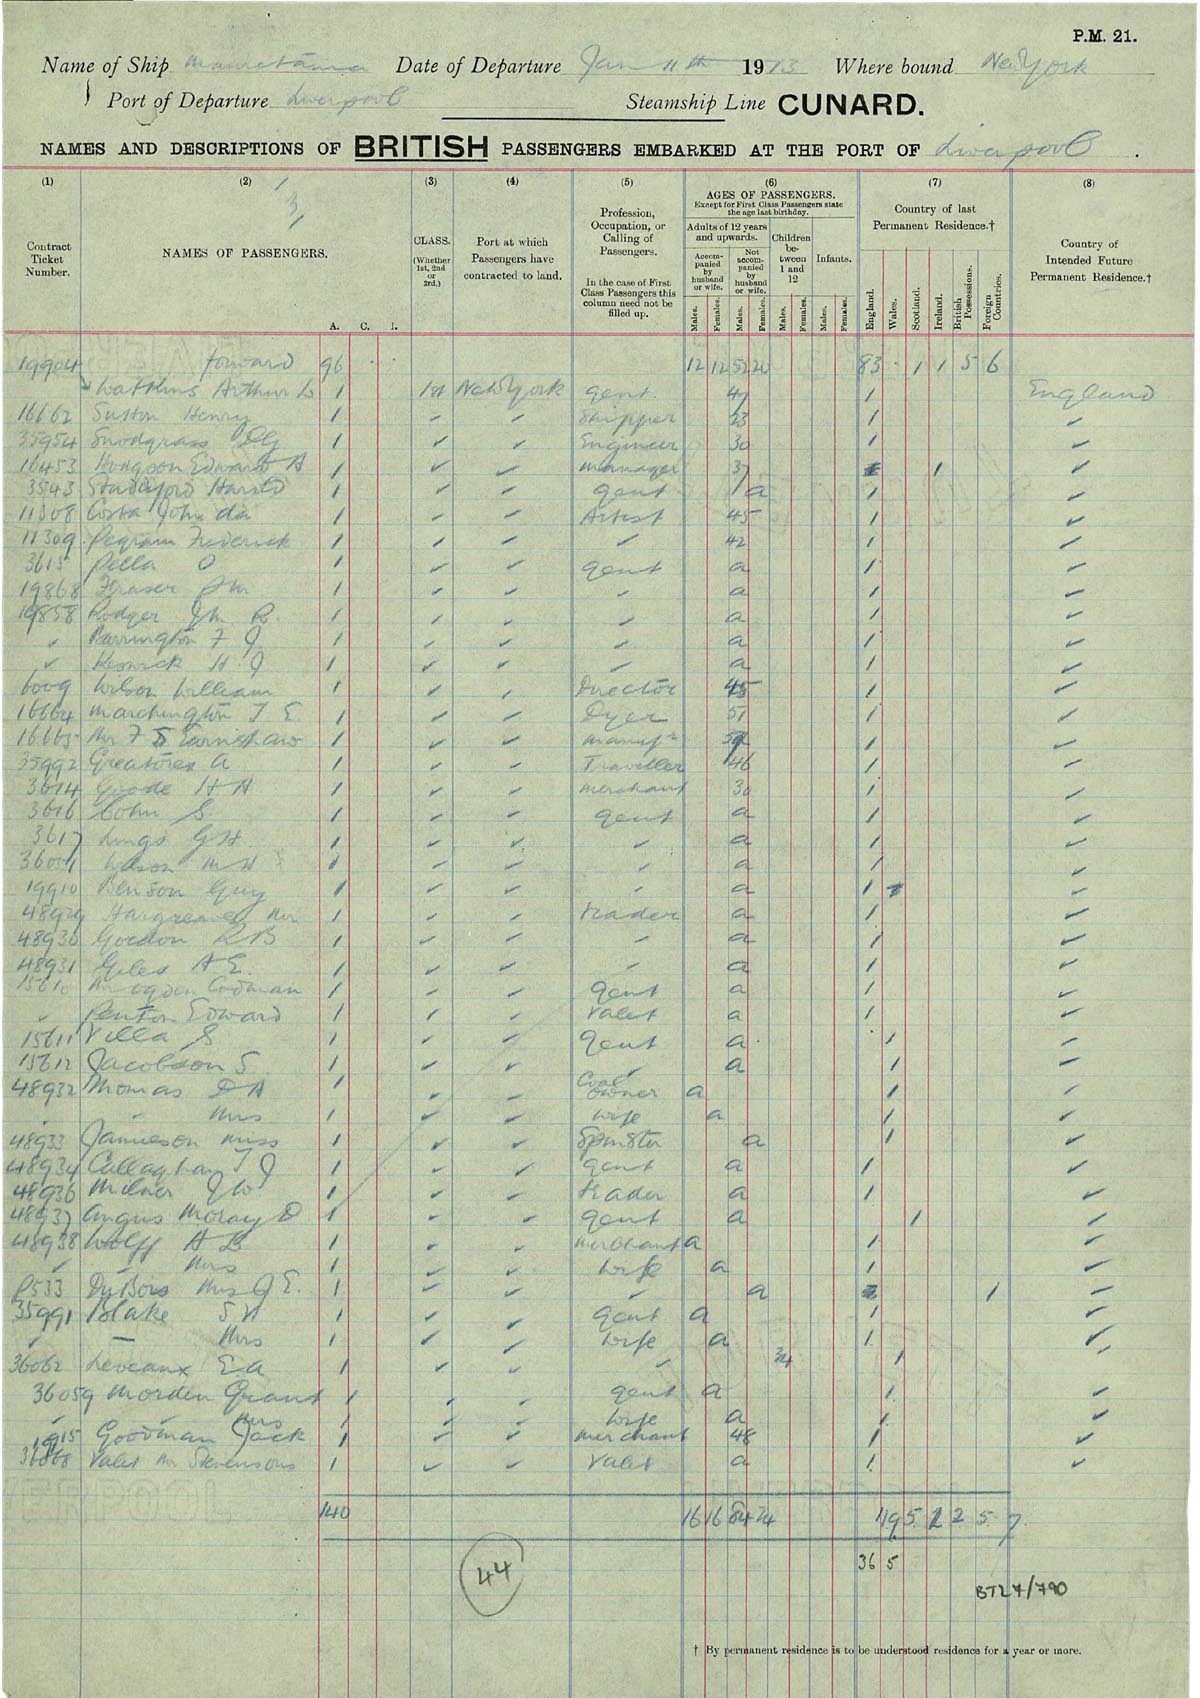 P.M. 21.
Name of Ship Mauretania Date of Departure Jan 11th 1913 Where bound New York
Port of Departure Liverpool Steamship Line CUNARD.
NAMES AND DESCRIPTIONS OF BRITISH PASSENGERS EMBARKED AT THE PORT OF Liverpool.
(1) (2) (3) (4) (5) (6) (7) (8)
Contract Ticket Number.
NAMES OF PASSENGERS.
A. C. I.
CLASS. (Whether 1st, 2nd or 3rd.)
Port at which Passengers have contracted to land.
Profession, Occupation, or Calling of Passengers.
In the case of First Class Passengers this column need not be filled up.
AGES OF PASSENGERS.
Except for First Class Passengers state the age last birthday.
Adults of 12 years and upwards.
Accompanied by husband or wife.
Not accompanied by husband or wife.
Children between 1 and 12
Infants.
Males. Females. Males. Females. Males. Females. Males. Females.
Country of last Permanent Residence.†
England. Wales. Scotland. Ireland. British Possessions. Foreign Countries.
Country of Intended Future Permanent Residence.†
19904 forward 96 12 12 52 20 83 - 1 1 5 6
Watkins Arthur 1 1st New York gent. 1 England
16662 Sutton Henry 1 Shipper 23 1
35954 Snodgrass 1 Engineer 30 1
16453 Hodgson Edward A 1 Manager 37 1
3543 Harold 1 gent a 1
11308 Costa John da 1 Artist 45 1
11309 Pegram Frederick 1 42 1
3615 Pella O 1 gent a 1
19868 Fraser 1 a 1
19858 Rodger Jn R. 1 a 1
Barrington F J 1 a 1
Keswick H J 1 a 1
6009 Wilson William 1 Director 45 1
16664 Marchington T E 1 Dyer 51 1
16665 Mr F S Earnshaw 1 1
35992 Greatorex A 1 Traveller 46 1
3614 Goode H A 1 merchant 30 1
3616 Cohn S. 1 gent a 1
3617 Lings G H 1 a 1
1 a 1
19910 Benson Guy 1 a 1
48929 Hargreaves Mr 1 trader a 1
48930 Gordon R B 1 a 1
48931 Giles A E. 1 a 1
15610 Mr Ogden Codman 1 gent a 1
Penton Edward 1 Valet a 1
15611 Villa S 1 gent a 1
15612 Jacobson S. 1 a 1
48932 Thomas D A 1 Coal owner a 1
Mrs 1 wife a 1
48933 Jamieson Miss 1 Spinster a 1
48934 Callaghan T J 1 gent a 1
48936 Milner J W 1 trader a 1
48937 Angus Moray D 1 gent a 1
48938 Wolff A B 1 merchant a 1
Mrs 1 wife a 1
P533 DuBois Mrs J E. 1 a 1
35991 Blake S H 1 gent a 1
Mrs 1 wife a 1
36062 Leveaux E A 1 1
36059 Morden Grant 1 gent a 1
Mrs 1 wife a 1
Goodman Jack 1 merchant 48 1
Valet Mr Stevensons 1 Valet a 1
140 16 16 84 24 119 5 2 2 5 7
36 5
44
BT27/790
† By permanent residence is to be understood residence for a year or more.